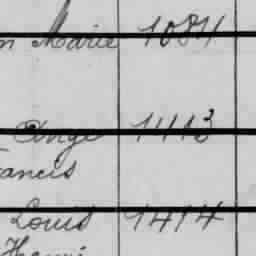 n Marie 1084
Ange 1413
ancis
Louis 1414
Henri